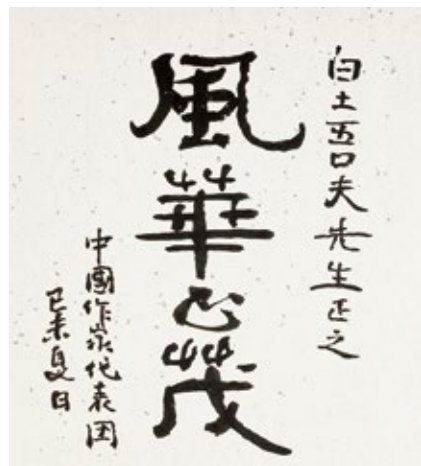 白土吾夫先生正之
風華正茂
中國作家代表团
己未夏日